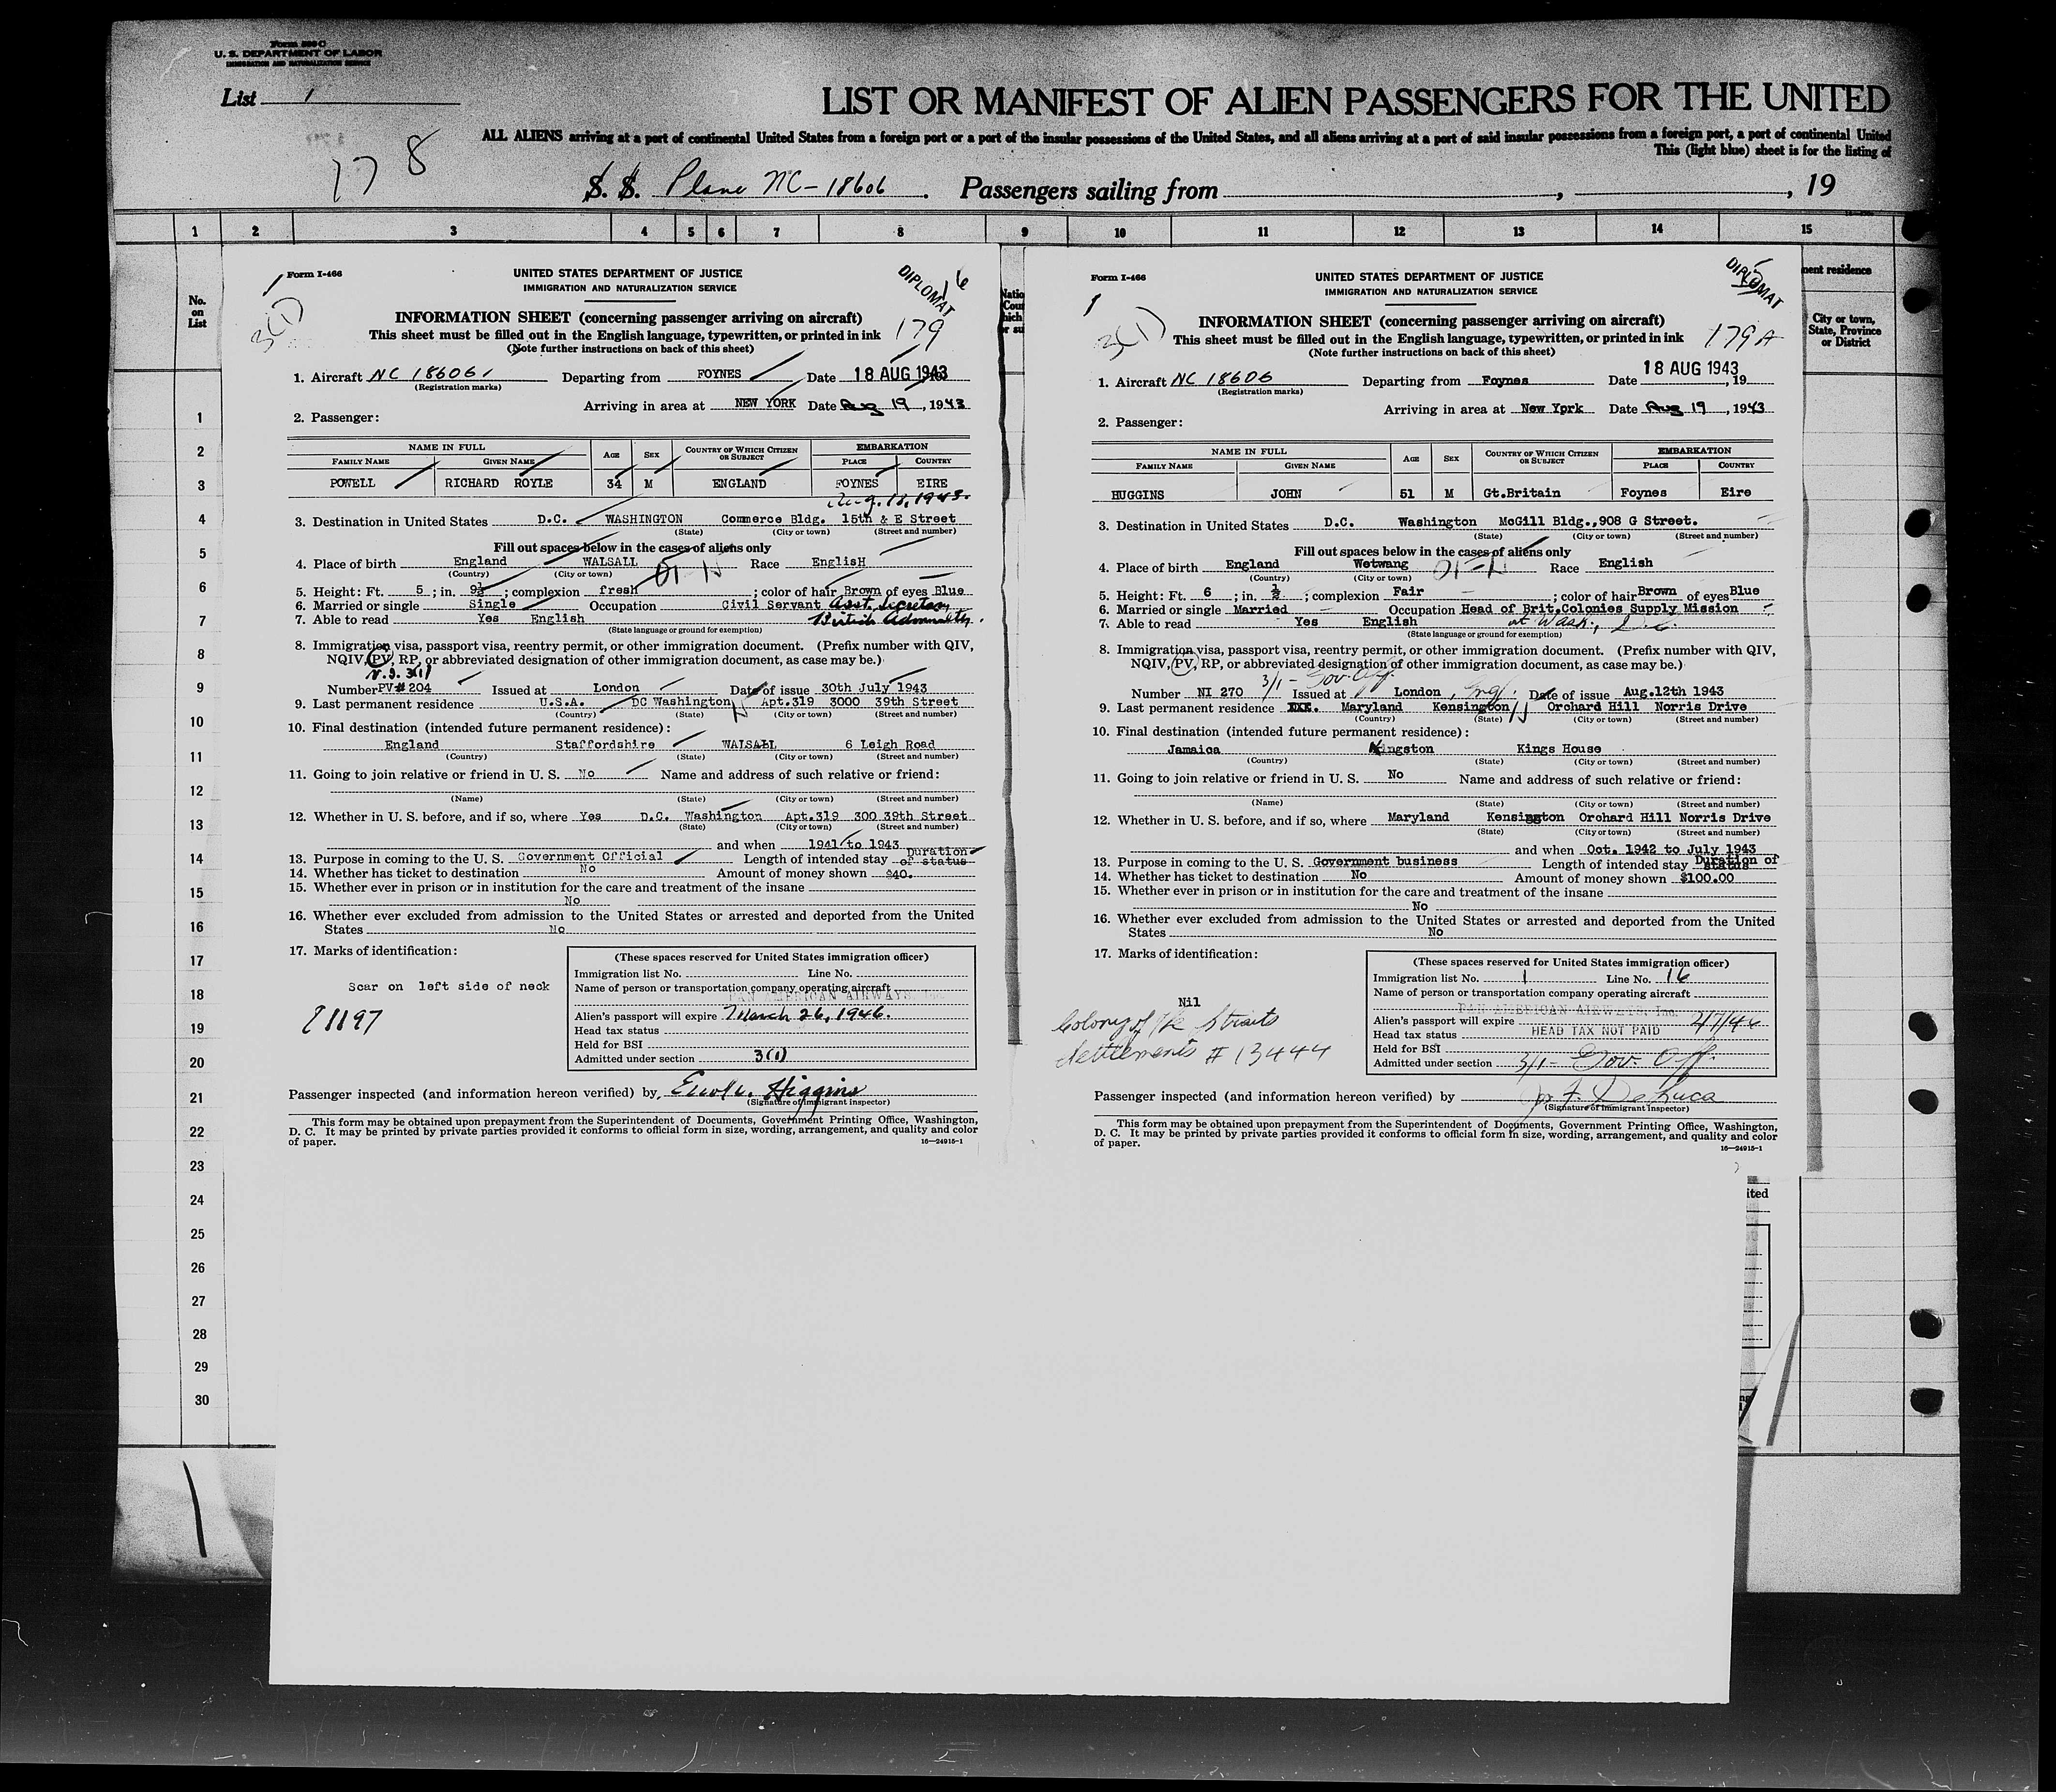 Form 500 C
U. S. DEPARTMENT OF LABOR
IMMIGRATION AND NATURALIZATION SERVICE
List 1
LIST OR MANIFEST OF ALIEN PASSENGERS FOR THE UNITED
ALL ALIENS arriving at a port of continental United States from a foreign port or a port of the insular possessions of the United States, and all aliens arriving at a port of said insular possessions from a foreign port, a port of continental United
This (light blue) sheet is for the listing of
178
S. S. Plane NC-18606 . Passengers sailing from , , 19
1 2 3 4 5 6 7 8 9 10 11 12 13 14 15
No. on List
1
2
3
4
5
6
7
8
9
10
11
12
13
14
15
16
17
18
19
20
21
22
23
24
25
26
27
28
29
30
Form I-466
UNITED STATES DEPARTMENT OF JUSTICE
IMMIGRATION AND NATURALIZATION SERVICE
DIPLOMAT
16
1
3(1)
179
INFORMATION SHEET (concerning passenger arriving on aircraft)
This sheet must be filled out in the English language, typewritten, or printed in ink
(Note further instructions on back of this sheet)
1. Aircraft NC 18606 Departing from FOYNES Date 18 AUG 1943
(Registration marks)
Arriving in area at NEW YORK Date Aug 19, 1943
2. Passenger:
NAME IN FULL AGE SEX COUNTRY OF WHICH CITIZEN OR SUBJECT EMBARKATION
FAMILY NAME GIVEN NAME PLACE COUNTRY
POWELL RICHARD ROYLE 34 M ENGLAND FOYNES EIRE
Aug. 18, 1943.
3. Destination in United States D.C. WASHINGTON Commerce Bldg. 15th & E Street
(State) (City or town) (Street and number)
Fill out spaces below in the cases of aliens only
4. Place of birth England WALSALL Race EnglisH
(Country) (City or town)
5. Height: Ft. 5 ; in. 9½ ; complexion fresh ; color of hair Brown of eyes Blue
6. Married or single Single Occupation Civil Servant Asst. Secretary
7. Able to read Yes English British Admiralty.
(State language or ground for exemption)
8. Immigration visa, passport visa, reentry permit, or other immigration document. (Prefix number with QIV,
NQIV, PV, RP, or abbreviated designation of other immigration document, as case may be.)
Number PV#204 Issued at London Date of issue 30th July 1943
9. Last permanent residence U.S.A. DC Washington Apt.319 3000 39th Street
(Country) (State) (City or town) (Street and number)
10. Final destination (intended future permanent residence):
England Staffordshire WALSALL 6 Leigh Road
(Country) (State) (City or town) (Street and number)
11. Going to join relative or friend in U. S. No Name and address of such relative or friend:
(Name) (State) (City or town) (Street and number)
12. Whether in U. S. before, and if so, where Yes D.C. Washington Apt.319 300 39th Street
(State) (City or town) (Street and number)
and when 1941 to 1943
13. Purpose in coming to the U. S. Government Official Length of intended stay Duration of status
14. Whether has ticket to destination No Amount of money shown $40.
15. Whether ever in prison or in institution for the care and treatment of the insane
No
16. Whether ever excluded from admission to the United States or arrested and deported from the United
States No
17. Marks of identification:
Scar on left side of neck
(These spaces reserved for United States immigration officer)
Immigration list No. Line No.
Name of person or transportation company operating aircraft
PAN AMERICAN AIRWAYS, Inc.
Alien's passport will expire March 26, 1946.
Head tax status
Held for BSI
Admitted under section 3(1)
Passenger inspected (and information hereon verified) by Higgins
(Signature of immigrant inspector)
This form may be obtained upon prepayment from the Superintendent of Documents, Government Printing Office, Washington,
D. C. It may be printed by private parties provided it conforms to official form in size, wording, arrangement, and quality and color
of paper. 16—24915-1
Form I-466
UNITED STATES DEPARTMENT OF JUSTICE
IMMIGRATION AND NATURALIZATION SERVICE
DIPLOMAT
1
3(1)
179A
INFORMATION SHEET (concerning passenger arriving on aircraft)
This sheet must be filled out in the English language, typewritten, or printed in ink
(Note further instructions on back of this sheet)
1. Aircraft NC 18606 Departing from Foynes Date 18 AUG 1943, 19
(Registration marks)
Arriving in area at New York Date Aug 19, 1943
2. Passenger:
NAME IN FULL AGE SEX COUNTRY OF WHICH CITIZEN OR SUBJECT EMBARKATION
FAMILY NAME GIVEN NAME PLACE COUNTRY
HUGGINS JOHN 51 M Gt.Britain Foynes Eire
3. Destination in United States D.C. Washington McGill Bldg.,908 G Street.
(State) (City or town) (Street and number)
Fill out spaces below in the cases of aliens only
4. Place of birth England Wetwang Race English
(Country) (City or town)
5. Height: Ft. 6 ; in. ½ ; complexion Fair ; color of hair Brown of eyes Blue
6. Married or single Married Occupation Head of Brit.Colonies Supply Mission
7. Able to read Yes English at Wash., D.C.
(State language or ground for exemption)
8. Immigration visa, passport visa, reentry permit, or other immigration document. (Prefix number with QIV,
NQIV, PV, RP, or abbreviated designation of other immigration document, as case may be.)
3/1 - Gov. Off.
Number NI 270 Issued at London, Eng. Date of issue Aug.12th 1943
9. Last permanent residence Maryland Kensington Orchard Hill Norris Drive
(Country) (State) (City or town) (Street and number)
10. Final destination (intended future permanent residence):
Jamaica Kingston Kings House
(Country) (State) (City or town) (Street and number)
11. Going to join relative or friend in U. S. No Name and address of such relative or friend:
(Name) (State) (City or town) (Street and number)
12. Whether in U. S. before, and if so, where Maryland Kensington Orchard Hill Norris Drive
(State) (City or town) (Street and number)
and when Oct. 1942 to July 1943
13. Purpose in coming to the U. S. Government business Length of intended stay Duration of status
14. Whether has ticket to destination No Amount of money shown $100.00
15. Whether ever in prison or in institution for the care and treatment of the insane
No
16. Whether ever excluded from admission to the United States or arrested and deported from the United
States No
17. Marks of identification:
Nil
Colony of the Straits
Settlements # 13444
(These spaces reserved for United States immigration officer)
Immigration list No. 1 Line No. 16
Name of person or transportation company operating aircraft
PAN AMERICAN AIRWAYS, Inc.
Alien's passport will expire
Head tax status HEAD TAX NOT PAID
Held for BSI
Admitted under section 3/1 - Gov. Off.
Passenger inspected (and information hereon verified) by DeLuca
(Signature of immigrant inspector)
This form may be obtained upon prepayment from the Superintendent of Documents, Government Printing Office, Washington,
D. C. It may be printed by private parties provided it conforms to official form in size, wording, arrangement, and quality and color
of paper. 16—24915-1
nent residence
City or town,
State, Province
or District
ited